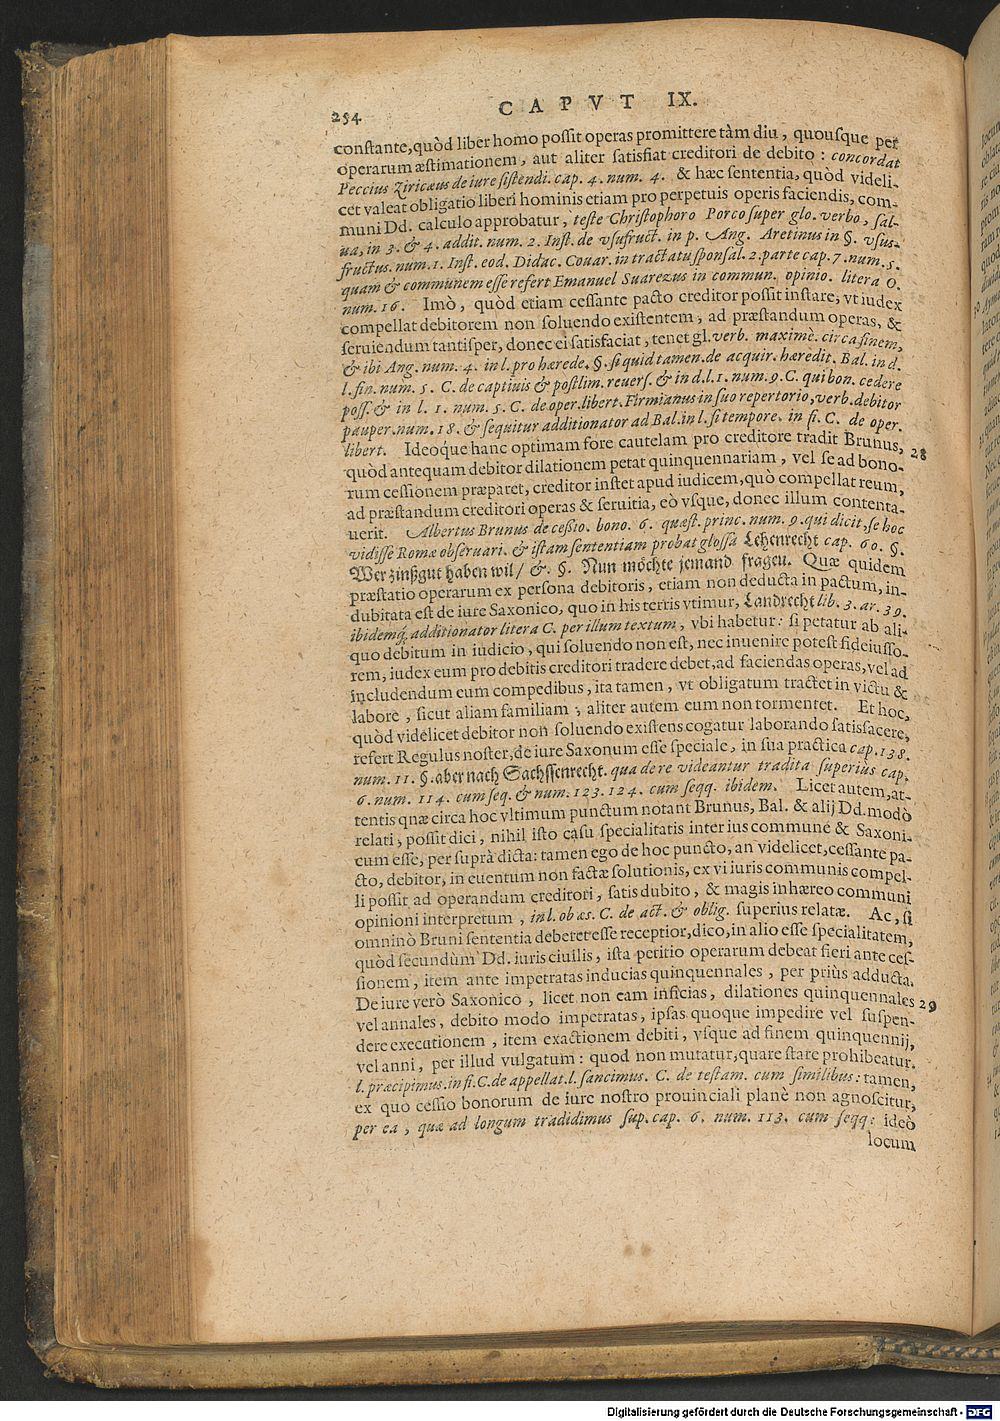 254
CAPVT IX.
constante, quòd liber homo possit operas promittere tàm diu, quousque per
operarum æstimationem, aut aliter satisfiat creditori de debito: concordat
Peccius Ziricæus de iure sistendi. cap. 4. num. 4. & hæc sententia, quòd videli-
cet valeat obligatio liberi hominis etiam pro perpetuis operis faciendis, com-
muni Dd. calculo approbatur, teste Christophoro Porco super glo. verbo, sal-
ua, in 3. & 4. addit. num. 2. Inst. de vsufruct. in p. Ang. Aretinus in §. vsus-
fructus. num. 1. Inst. eod. Didac. Couar. in tractatu sponsal. 2. parte cap. 7. num. 5.
quam & communem esse refert Emanuel Suarezus in commun. opinio. litera O.
num. 16. Imò, quòd etiam cessante pacto creditor possit instare, vt iudex
compellat debitorem non soluendo existentem, ad præstandum operas, &
seruiendum tantisper, donec ei satisfaciat, tenet gl. verb. maximè. circa finem,
& ibi Ang. num. 4. in l. pro hærede. §. si quid tamen. de acquir. hæredit. Bal. in d.
l. fin. num. 5. C. de captiuis & postlim. reuers. & in d. l. 1. num. 9. C. qui bon. cedere
poss. & in l. 1. num. 5. C. de oper. libert. Firmianus in suo repertorio, verb. debitor
pauper. num. 18. & sequitur additionator ad Bal. in l. si tempore. in fi. C. de oper.
libert. Ideoque hanc optimam fore cautelam pro creditore tradit Brunus, 28
quòd antequam debitor dilationem petat quinquennariam, vel se ad bono-
rum cessionem præparet, creditor instet apud iudicem, quò compellat reum,
ad præstandum creditori operas & seruitia, eò vsque, donec illum contenta-
uerit. Albertus Brunus de cessio. bono. 6. quæst. princ. num. 9. qui dicit, se hoc
vidisse Romæ obseruari. & istam sententiam probat glossa Lehenrecht cap. 60. §.
Wer zinßgut haben wil/ &. §. Nun möchte jemand fragen. Quæ quidem
præstatio operarum ex persona debitoris, etiam non deducta in pactum, in-
dubitata est de iure Saxonico, quo in his terris vtimur, Landrecht lib. 3. ar. 39.
ibidemq́; additionator litera C. per illum textum, vbi habetur: si petatur ab ali-
quo debitum in iudicio, qui soluendo non est, nec inuenire potest fideiusso-
rem, iudex eum pro debitis creditori tradere debet, ad faciendas operas, vel ad
includendum eum compedibus, ita tamen, vt obligatum tractet in victu &
labore, sicut aliam familiam, aliter autem eum non tormentet. Et hoc,
quòd videlicet debitor non soluendo existens cogatur laborando satisfacere,
refert Regulus noster, de iure Saxonum esse speciale, in sua practica cap. 138.
num. 11. §. aber nach Sachssenrecht. qua de re videantur tradita superiùs cap.
6. num. 114. cum seq. & num. 123. 124. cum seqq. ibidem. Licet autem, at-
tentis quæ circa hoc vltimum punctum notant Brunus, Bal. & alij Dd. modò
relati, possit dici, nihil isto casu specialitatis inter ius commune & Saxoni-
cum esse, per suprà dicta: tamen ego de hoc puncto, an videlicet, cessante pa-
cto, debitor, in euentum non factæ solutionis, ex vi iuris communis compel-
li possit ad operandum creditori, satis dubito, & magis inhæreo communi
opinioni interpretum, in l. ob æs. C. de act. & oblig. superius relatæ. Ac, si
omninò Bruni sententia deberet esse receptior, dico, in alio esse specialitatem,
quòd secundùm Dd. iuris ciuilis, ista petitio operarum debeat fieri ante ces-
sionem, item ante impetratas inducias quinquennales, per priùs adducta.
De iure verò Saxonico, licet non eam inficias, dilationes quinquennales 29
vel annales, debito modo impetratas, ipsas quoque impedire vel suspen-
dere executionem, item exactionem debiti, vsque ad finem quinquennij,
vel anni, per illud vulgatum: quod non mutatur, quare stare prohibeatur.
l. præcipimus. in fi. C. de appellat. l. sancimus. C. de testam. cum similibus: tamen,
ex quo cessio bonorum de iure nostro prouinciali planè non agnoscitur,
per ea, quæ ad longum tradidimus sup. cap. 6. num. 113. cum seqq: ideò
locum
Digitalisierung gefördert durch die Deutsche Forschungsgemeinschaft - DFG